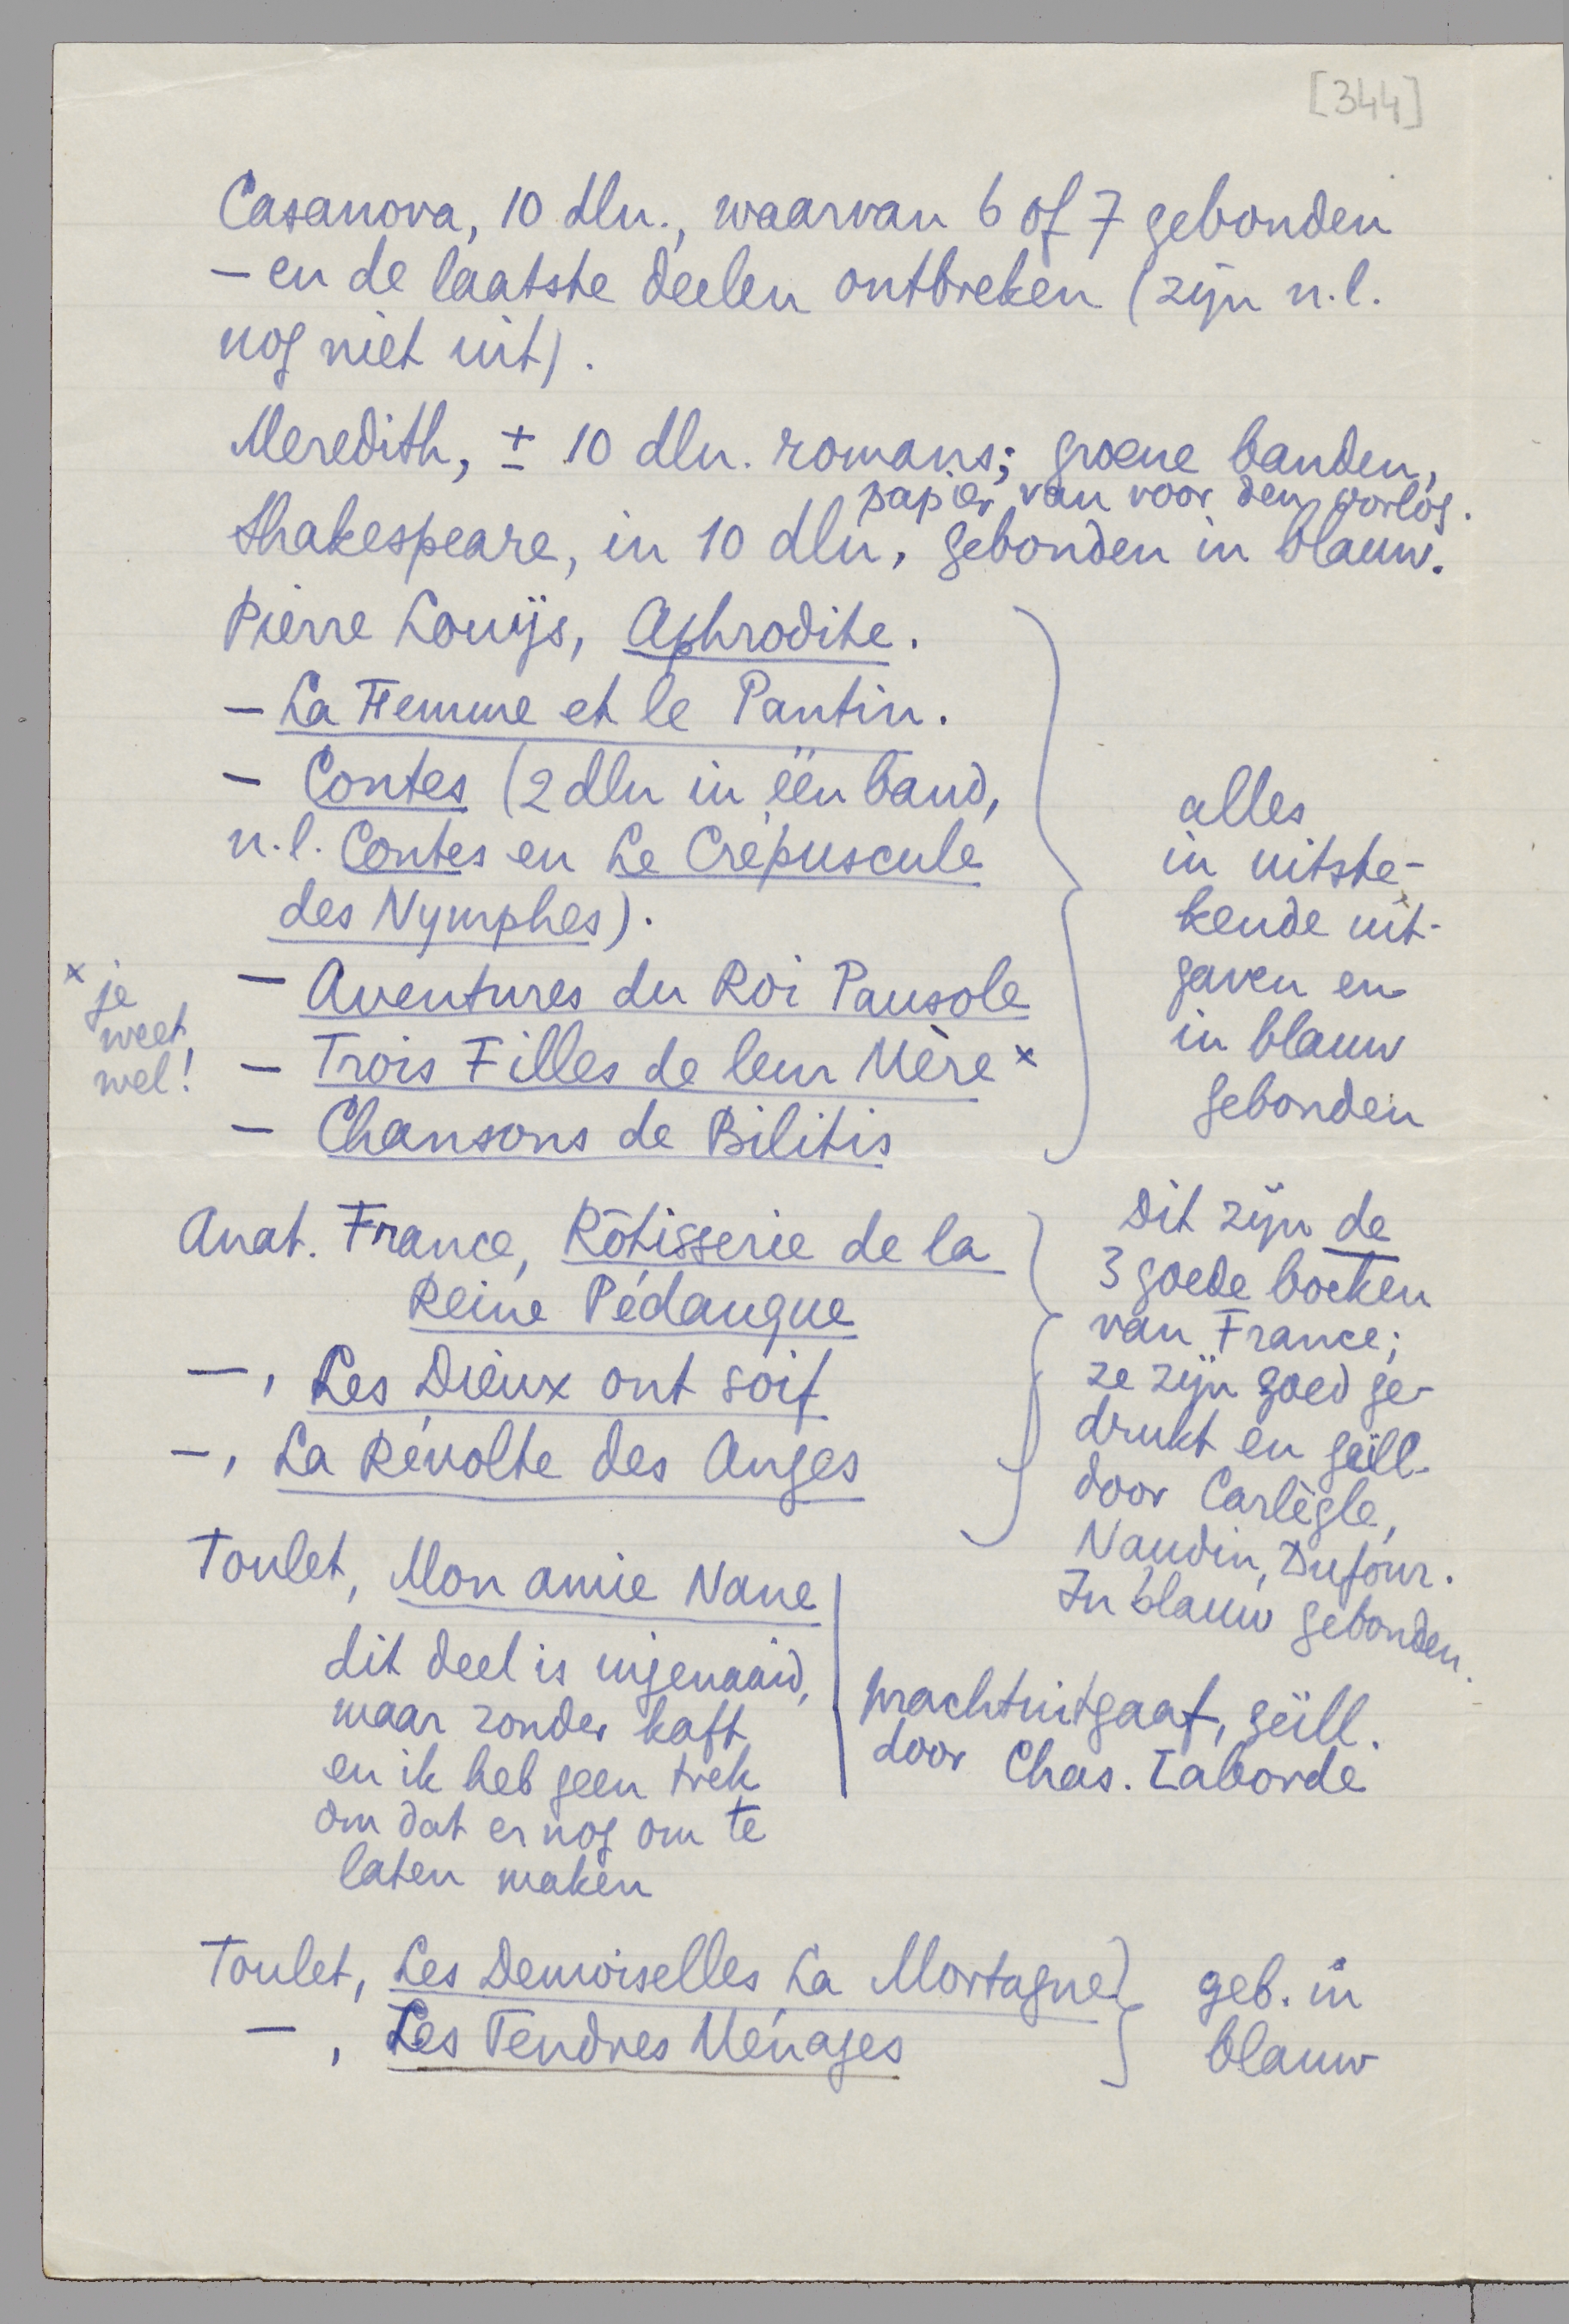 [344]
Casanova, 10 dln., waarvan 6 of 7 gebonden
– en de laatste deelen ontbreken (zijn n.l.
nog niet uit).
Meredith, ± 10 dln. romans; groene banden,
papier van voor den oorlog.
Shakespeare, in 10 dln, gebonden in blauw.
Pierre Louÿs, Aphrodite.
– La Femme et le Pantin.
– Contes (2 dln in één band,
n.l. Contes en Le Crépuscule
des Nymphes).
– Aventures du Roi Pausole
– Trois Filles de leur Mère x
– Chansons de Bilitis
x je
weet
wel!
alles
in uitste-
kende uit-
gaven en
in blauw
gebonden
Anat. France, Rôtisserie de la
Reine Pédauque
–, Les Dieux ont soif
–, La Révolte des Anges
Dit zijn de
3 goede boeken
van France;
ze zijn goed ge-
drukt en geïll.
door Carlègle,
Naudin, Dufour.
In blauw gebonden.
Toulet, Mon amie Nane
dit deel is ingenaaid,
maar zonder kaft
en ik heb geen trek
om dat er nog om te
laten maken
prachtuitgaaf, geïll.
door Chas. Laborde
Toulet, Les Demoiselles La Mortagne
–, Les Tendres Ménages
geb. in
blauw